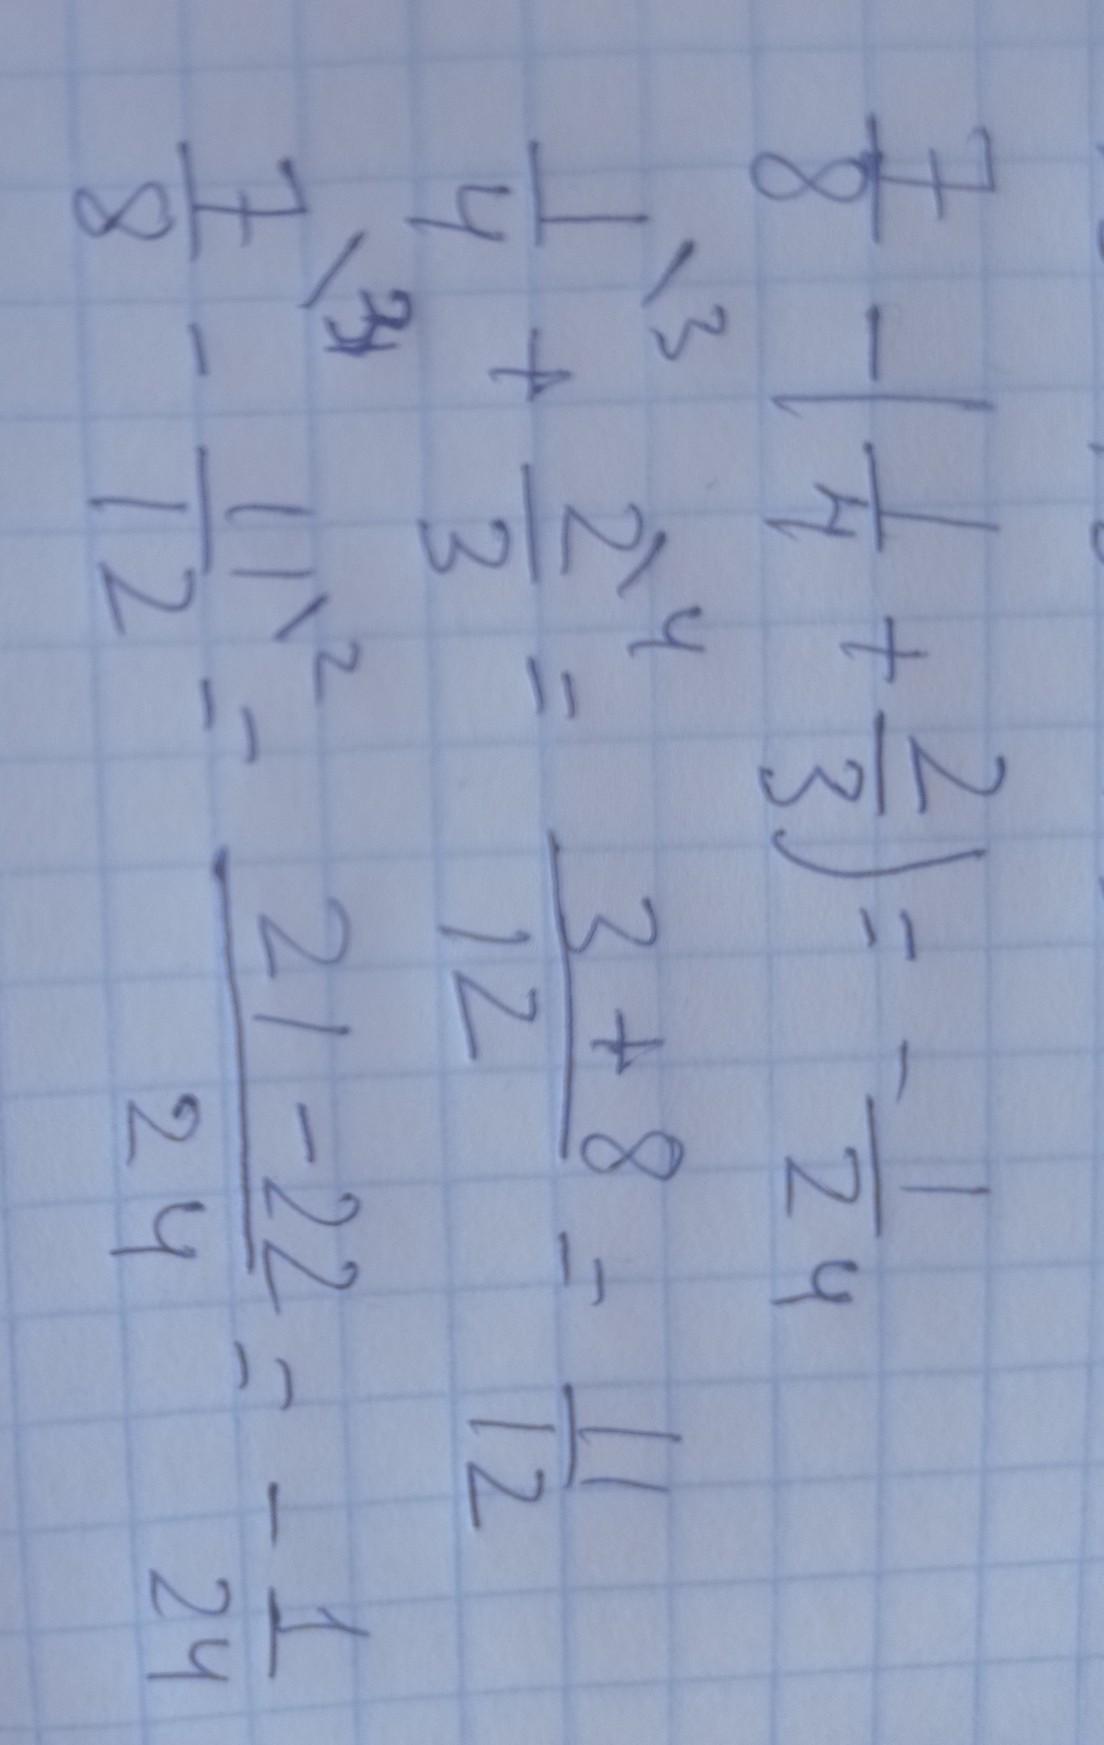 7/8 - (1/4 + 2/3) = - 1/24
1/4\3 + 2/3\4 = (3+8)/12 = 11/12
7/8\3 - 11/12\2 = (21-22)/24 = - 1/24